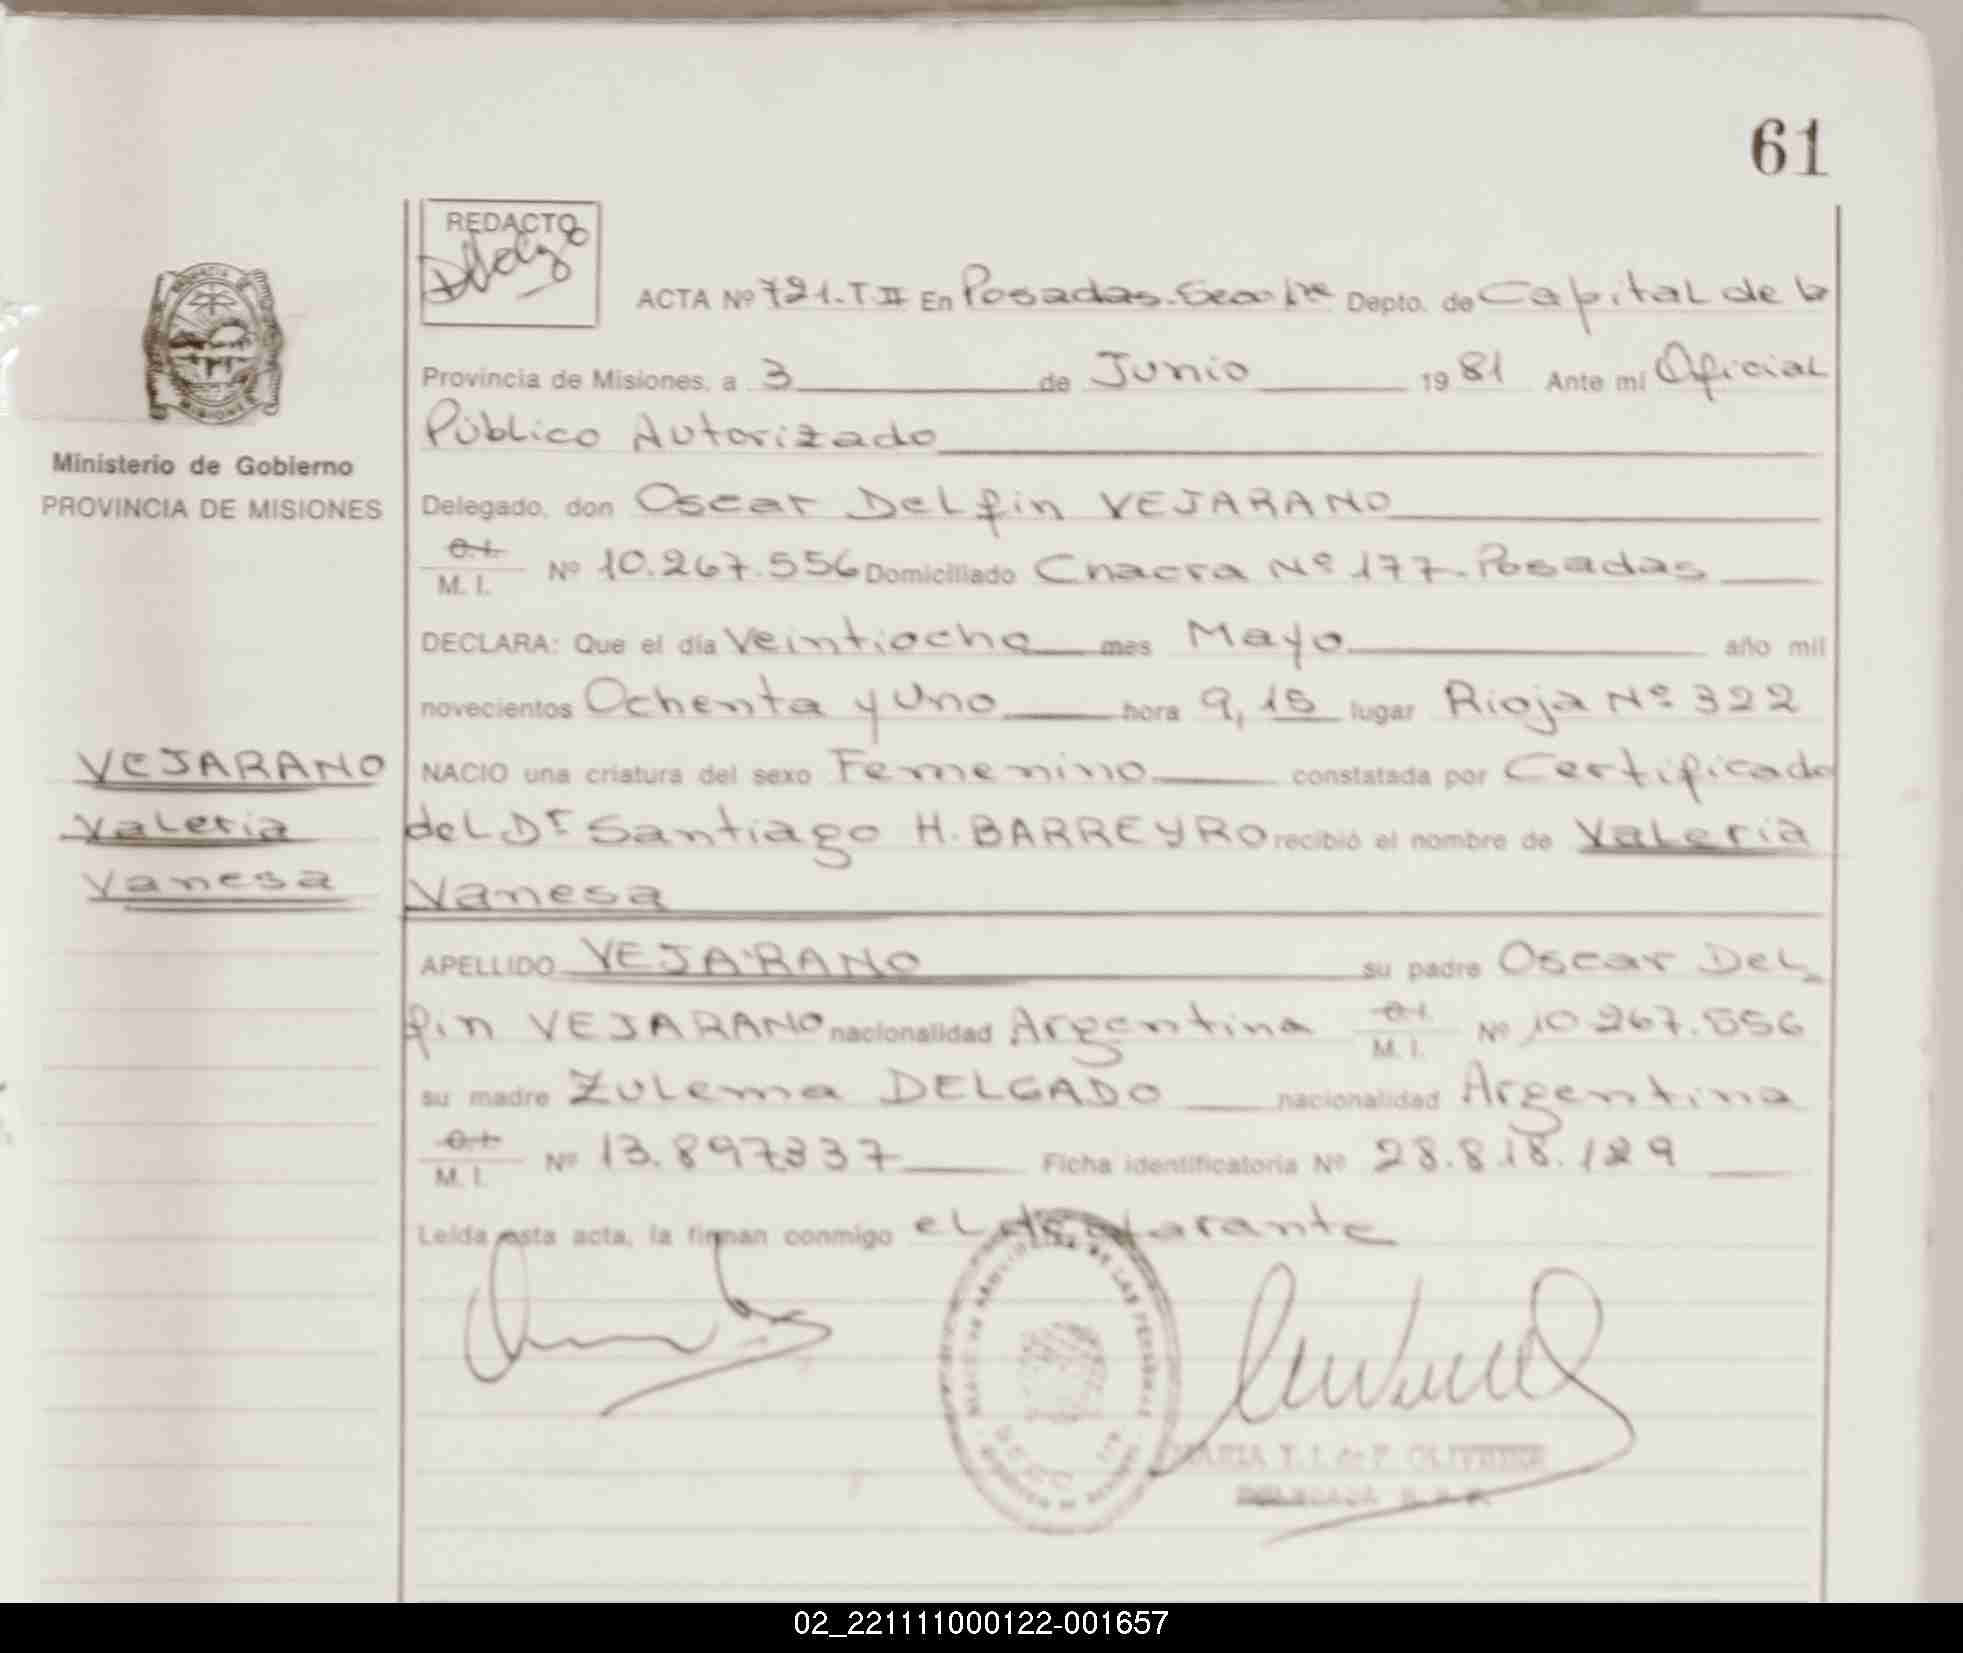 61
REDACTO
ACTA Nº 721.T II En Posadas.Secc 1ra Depto. de Capital de la
Provincia de Misiones, a 3 de Junio 1981 Ante mí Oficial
Público Autorizado
Ministerio de Gobierno
PROVINCIA DE MISIONES
Delegado, don Oscar Delfin VEJARANO
C.I.
M. I. Nº 10.267.556 Domiciliado Chacra Nº 177. Posadas
DECLARA: Que el día Veintiocho mes Mayo año mil
novecientos Ochenta y Uno hora 9,15 lugar Rioja Nº 322
VEJARANO
Valeria
Vanesa
NACIO una criatura del sexo Femenino constatada por Certificado
del Dr Santiago H. BARREYRO recibió el nombre de Valeria
Vanesa
APELLIDO VEJARANO su padre Oscar Del
fin VEJARANO nacionalidad Argentina C.I.
M. I. Nº 10.267.556
su madre Zulema DELGADO nacionalidad Argentina
C.I.
M. I. Nº 13.897.337 Ficha identificatoria Nº 28.8.18.129
Leída esta acta, la firman conmigo el declarante
MARIA T. I. de F.
02_221111000122-001657